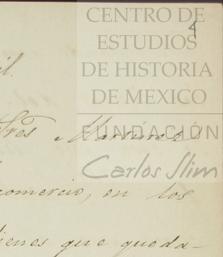 CENTRO DE
ESTUDIOS
DE HISTORIA
DE MEXICO
FUNDACIÓN
Carlos Slim
4
il.
Sres Martinez
comercio, en los
bienes que queda-